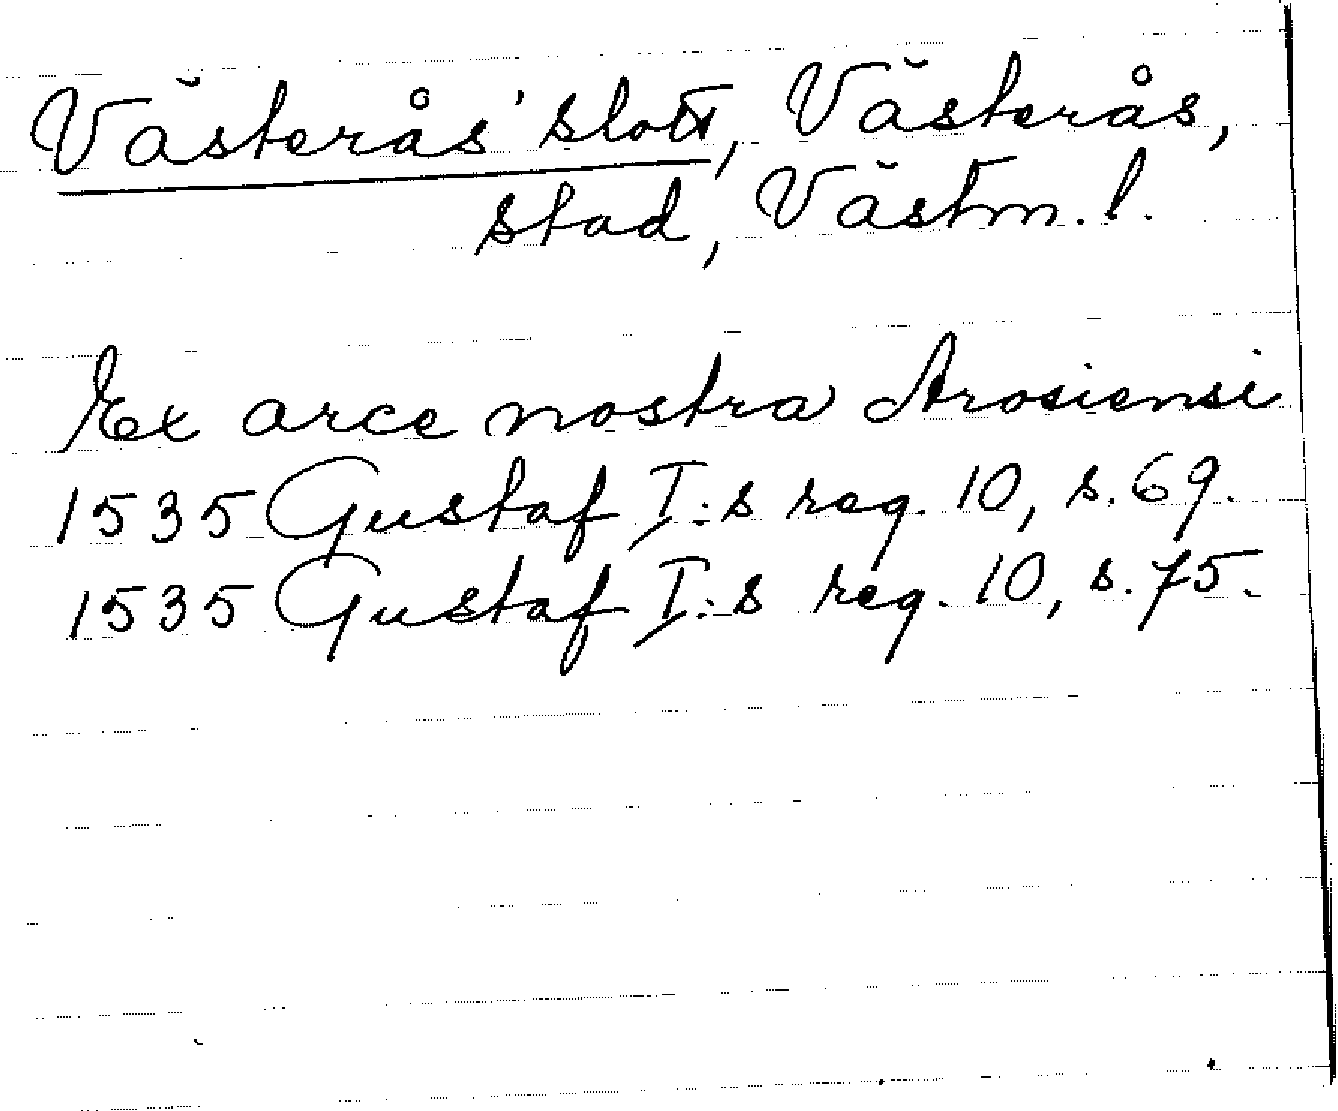 Västerås' slott, Västerås,
stad, Västm. l.
Ex arce nostra Arosiensi
1535 Gustaf I:s reg. 10, s. 69.
1535 Gustaf I:s reg. 10, s. 75.